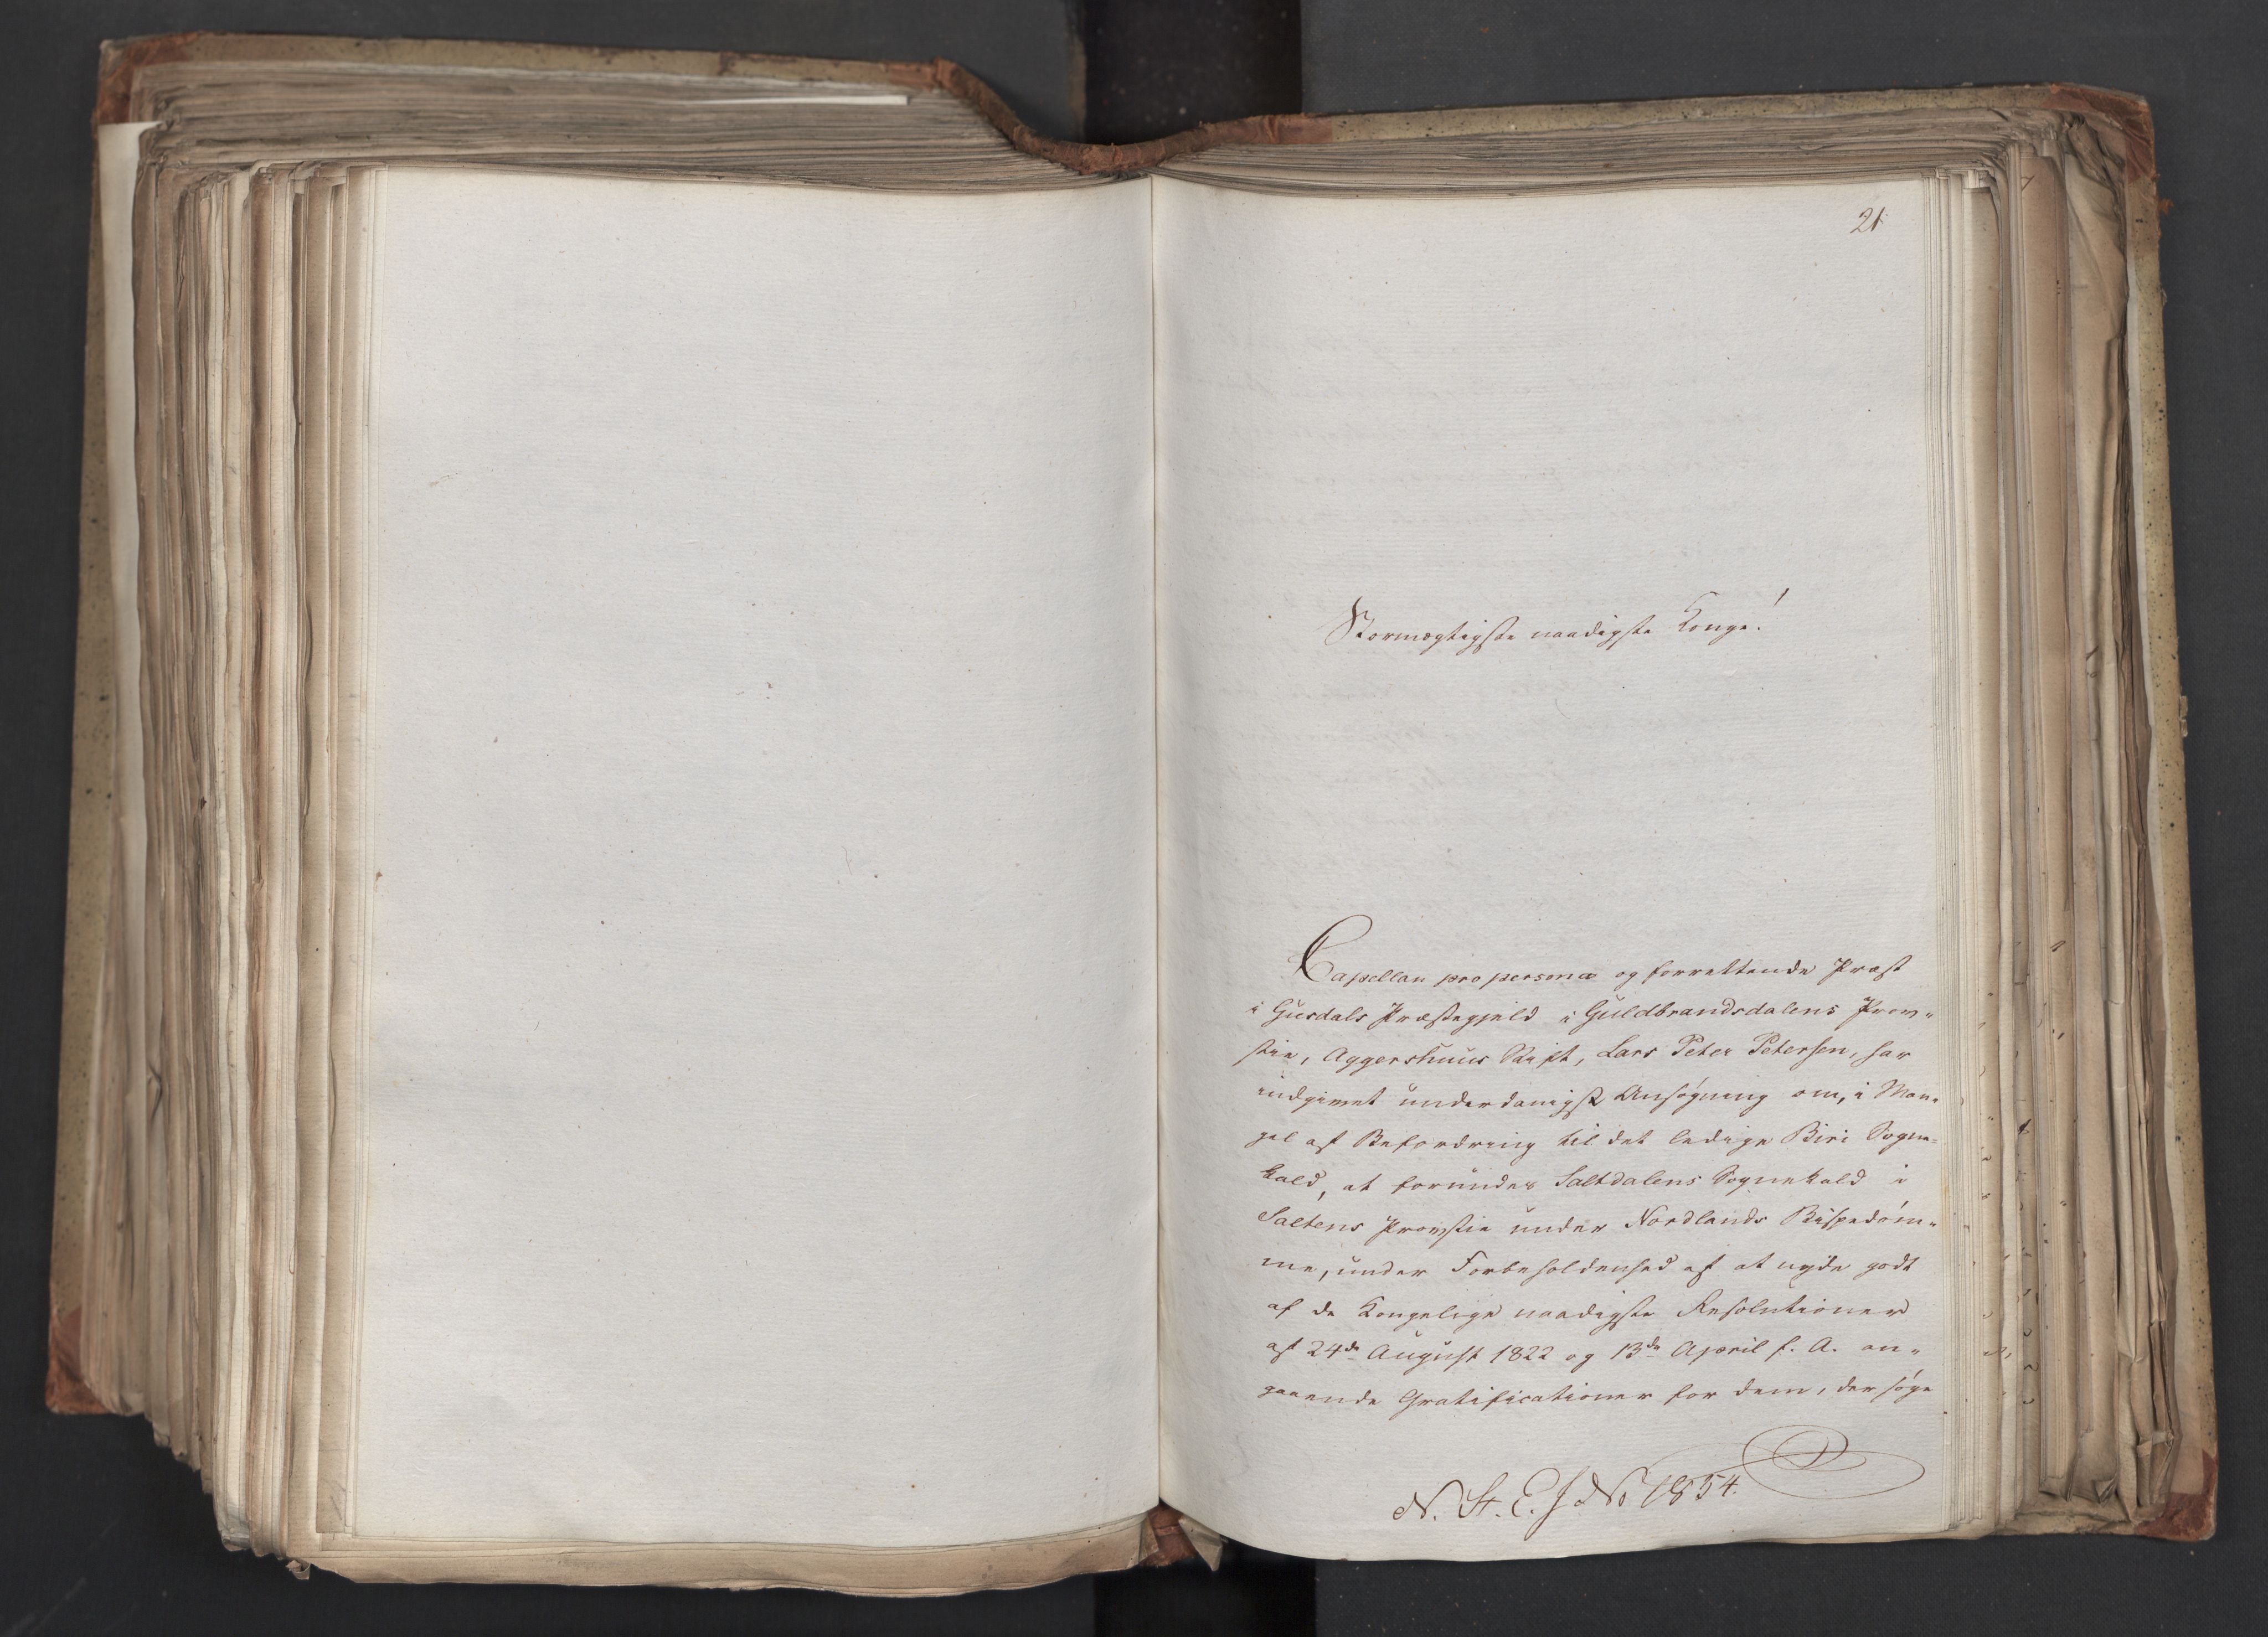 21
Stormægtigste naadigste Konge!
Capellan pro persona og forrettende Præst
i Gusdals Præstegjeld i Guldbrandsdalens Prov„
stie, Aggershuus Stift, Lars Peter Petersen, har
indgivet underdanigst Ansøgning om, i Man„
gel af Befordring til det ledige Biri Sogne„
kald, at forundes Saltdalens Sognekald i
Saltens Provstie under Nordlands Bispedøm„
me, under Forbeholdenhed af at nyde godt
af de Kongelige naadigste Resolutioner
af 24de August 1822 og 13de April f. A. an„
gaaende Gratificationer for dem, der søge
N. St. E. J No 1854.